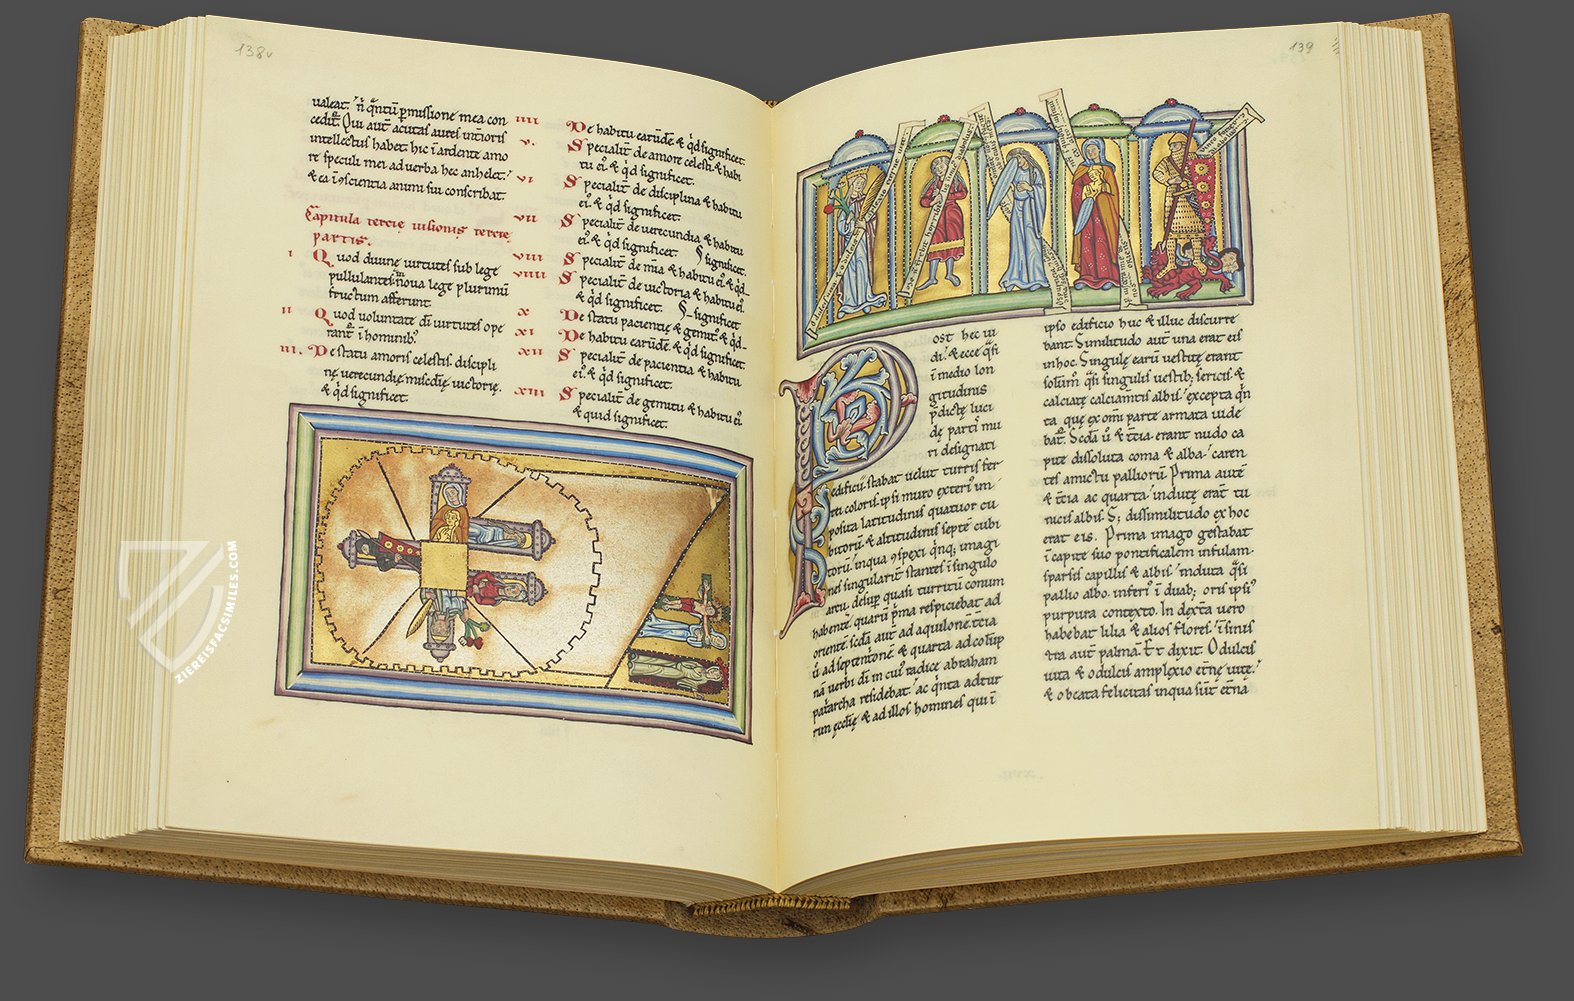 138v
ualeat. ñ q̃ntũ p̱missione mea con
cedit̃. Qui aut̃ acutas aures int̾ioris
intellectus habet hic ĩ ardente amo
re speculi mei ad uerba hec anhelet.
& ea ĩ ꝯscientia animi sui conscribat.
Capitula tercie uisionis tercie
partis.
I Quod diuine uirtutes sub lege
pullulantes ĩ noua lege plurimũ
fructum afferunt.
II Quod uoluntate dĩ uirtutes ope
rant̃ ĩ hominib;
III. De statu amoris celestis. discipli
nę uerecundię miscd̃ię uictorię.
& q̇d significet.
IIII De habitu earũdẽ. & q̇d significet.
V. Specialit̃ de amore celesti. & habi
tu ei̾. & q̇d significet.
VI Specialit̃ de disciplina & habitu
ei̾. & q̇d significet.
VII Specialit̃ de uerecundia & habitu
ei̾. & q̇d significet. significet.
VIII Specialit̃ de mĩa & habitu ei̾. & q̇d
VIIII Specialit̃ de uictoria & habitu ei̾.
& q̇d significet. significet
X De statu pacientię & gemit̾. & q̇d
XI De habitu earũdẽ. & q̇d significet.
XII Specialit̃ de pacientia & habitu
ei̾. & q̇d significet.
XIII Specialit̃ de gemitu & habitu ei̾.
& quid significet.
139
Post hec ui
di. & ecce q̃si
ĩ medio lon
gitudinis
p̱dictę luci
dę parti̾ mu
ri designati
edificii. stabat uelut turris fer
rei coloris. ipsi muro exteri̾ im
posita latitudinis quatuor cu
bitorũ & altitudinis septẽ cubi
torũ. in qua ꝯspexi q̇nq; imagi
nes singularit̃ stantes ĩ singulo
arcu. desup̱ quasi turritũ conum
habentẽ. quarũ p̃ma respiciebat ad
orientẽ. scd̃a aut̃ ad aquilonẽ. t̃cia
ũ ad septent̾onẽ. & quarta ad colũp
nã uerbi dĩ in cui̾ radice abraham
pat̃archa residebat. ac q̇nta ad tur
rim ęcclię & ad illos homines qui ĩ
ipso edificio huc & illuc discurre
bant. Similitudo aut̃ una erat eis
in hoc. Singulę earũ uestitę erant
solum̾ q̃si singulis uestib; sericis &
calciatę calciam̃tis albis. excepta q̇n
ta. quę ex om̃i parte armata uide
bat̃. Scd̃a ũ & t̃cia erant nudo ca
pite dissoluta coma & alba. caren
tes amictu palliorũ. Prima autẽ
& t̃cia ac quarta. indutę erãt tu
nicis albis. S; dissimilitudo ex hoc
erat eis. Prima imago gestabat
ĩ capite suo pontificalem infulam.
sparsis capillis & albis. induta q̃si
pallio albo. inferi̾ ĩ duab; oris ipsi̾
purpura contexto. In dext̃a uero
habebat lilia & alios flores. ĩ sinis
tra aut̃ palmã. Et dixit. O dulcis
uita & o dulcis amplexio et̃nę uitę.
& o beata felicitas in qua sũt et̃nã
ZIEREISFACSIMILES.COM